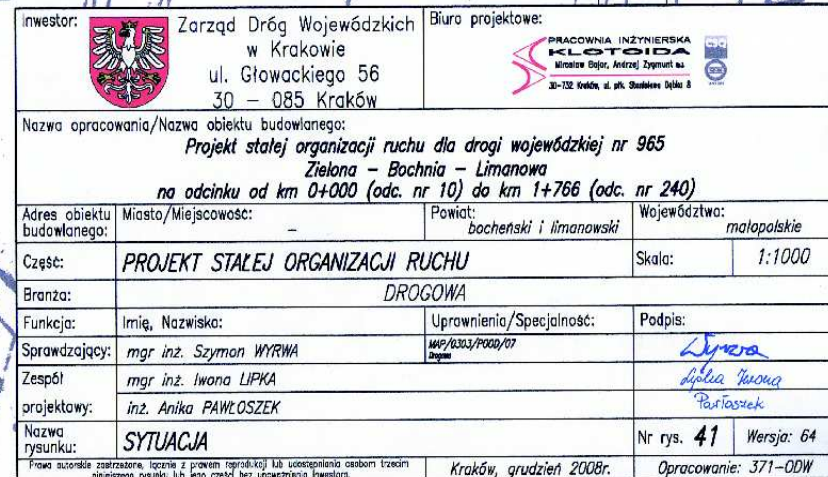 Inwestor:
Zarząd Dróg Wojewódzkich
w Krakowie
ul. Głowackiego 56
30 - 085 Kraków
Biuro projektowe:
PRACOWNIA INŻYNIERSKA
KLOTOIDA
Mirosław Bajor, Andrzej Zygmunt s.c.
30-732 Kraków, ul. płk. Stanisława Dąbka 8
Nazwa opracowania/Nazwa obiektu budowlanego:
Projekt stałej organizacji ruchu dla drogi wojewódzkiej nr 965
Zielona - Bochnia - Limanowa
na odcinku od km 0+000 (odc. nr 10) do km 1+766 (odc. nr 240)
Adres obiektu budowlanego:
Miasto/Miejscowość:
-
Powiat:
bocheński i limanowski
Województwo:
małopolskie
Część: PROJEKT STAŁEJ ORGANIZACJI RUCHU Skala: 1:1000
Branża: DROGOWA
Funkcja: Imię, Nazwisko: Uprawnienia/Specjalność: Podpis:
Sprawdzający: mgr inż. Szymon WYRWA MAP/0303/POOD/07 Drogowa Wyrwa
Zespół projektowy:
mgr inż. Iwona LIPKA Lipka Iwona
inż. Anika PAWŁOSZEK Pawłoszek
Nazwa rysunku: SYTUACJA Nr rys. 41 Wersja: 64
Prawa autorskie zastrzeżone, łącznie z prawem reprodukcji lub udostępniania osobom trzecim
niniejszego rysunku lub jego części bez upoważnienia Inwestora.
Kraków, grudzień 2008r. Opracowanie: 371-ODW